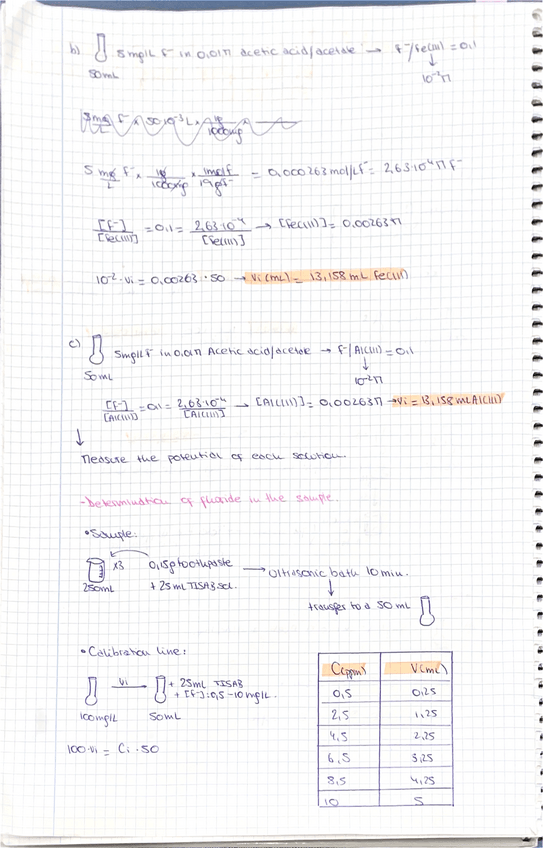 b) 5mg/L F⁻ in 0,01M acetic acid/acetate → F⁻/Fe(III) = 0,1
↓
50mL 10⁻²M
5 mg/L F⁻ × 50·10⁻³ L × 1g/1000mg ×
5 mg/L F⁻ × 1g/1000mg × 1mol F⁻/19g F⁻ = 0,000263 mol/L F⁻ = 2,63·10⁻⁴ M F⁻
[F⁻]/[Fe(III)] = 0,1 = 2,63·10⁻⁴/[Fe(III)] → [Fe(III)] = 0,00263M
10⁻² · Vi = 0,00263 · 50 → Vi (mL) = 13,158 mL Fe(III)
c) 5mg/L F⁻ in 0,01M Acetic acid/acetate → F⁻/Al(III) = 0,1
↓
50mL 10⁻²M
[F⁻]/[Al(III)] = 0,1 = 2,63·10⁻⁴/[Al(III)] → [Al(III)] = 0,00263M → Vi = 13,158 mL Al(III)
↓
Measure the potential of each solution.
- Determination of fluoride in the sample.
• Sample:
x3 0,15g toothpaste → Ultrasonic bath 10 min.
250mL + 25 mL TISAB sol. ↓
transfer to a 50 mL
• Calibration line:
Vi → + 25mL TISAB
+ [F⁻]: 0,5-10 mg/L.
100mg/L 50mL
100·Vi = Ci · 50
C(ppm) V(mL)
0,5 0,25
2,5 1,25
4,5 2,25
6,5 3,25
8,5 4,25
10 5